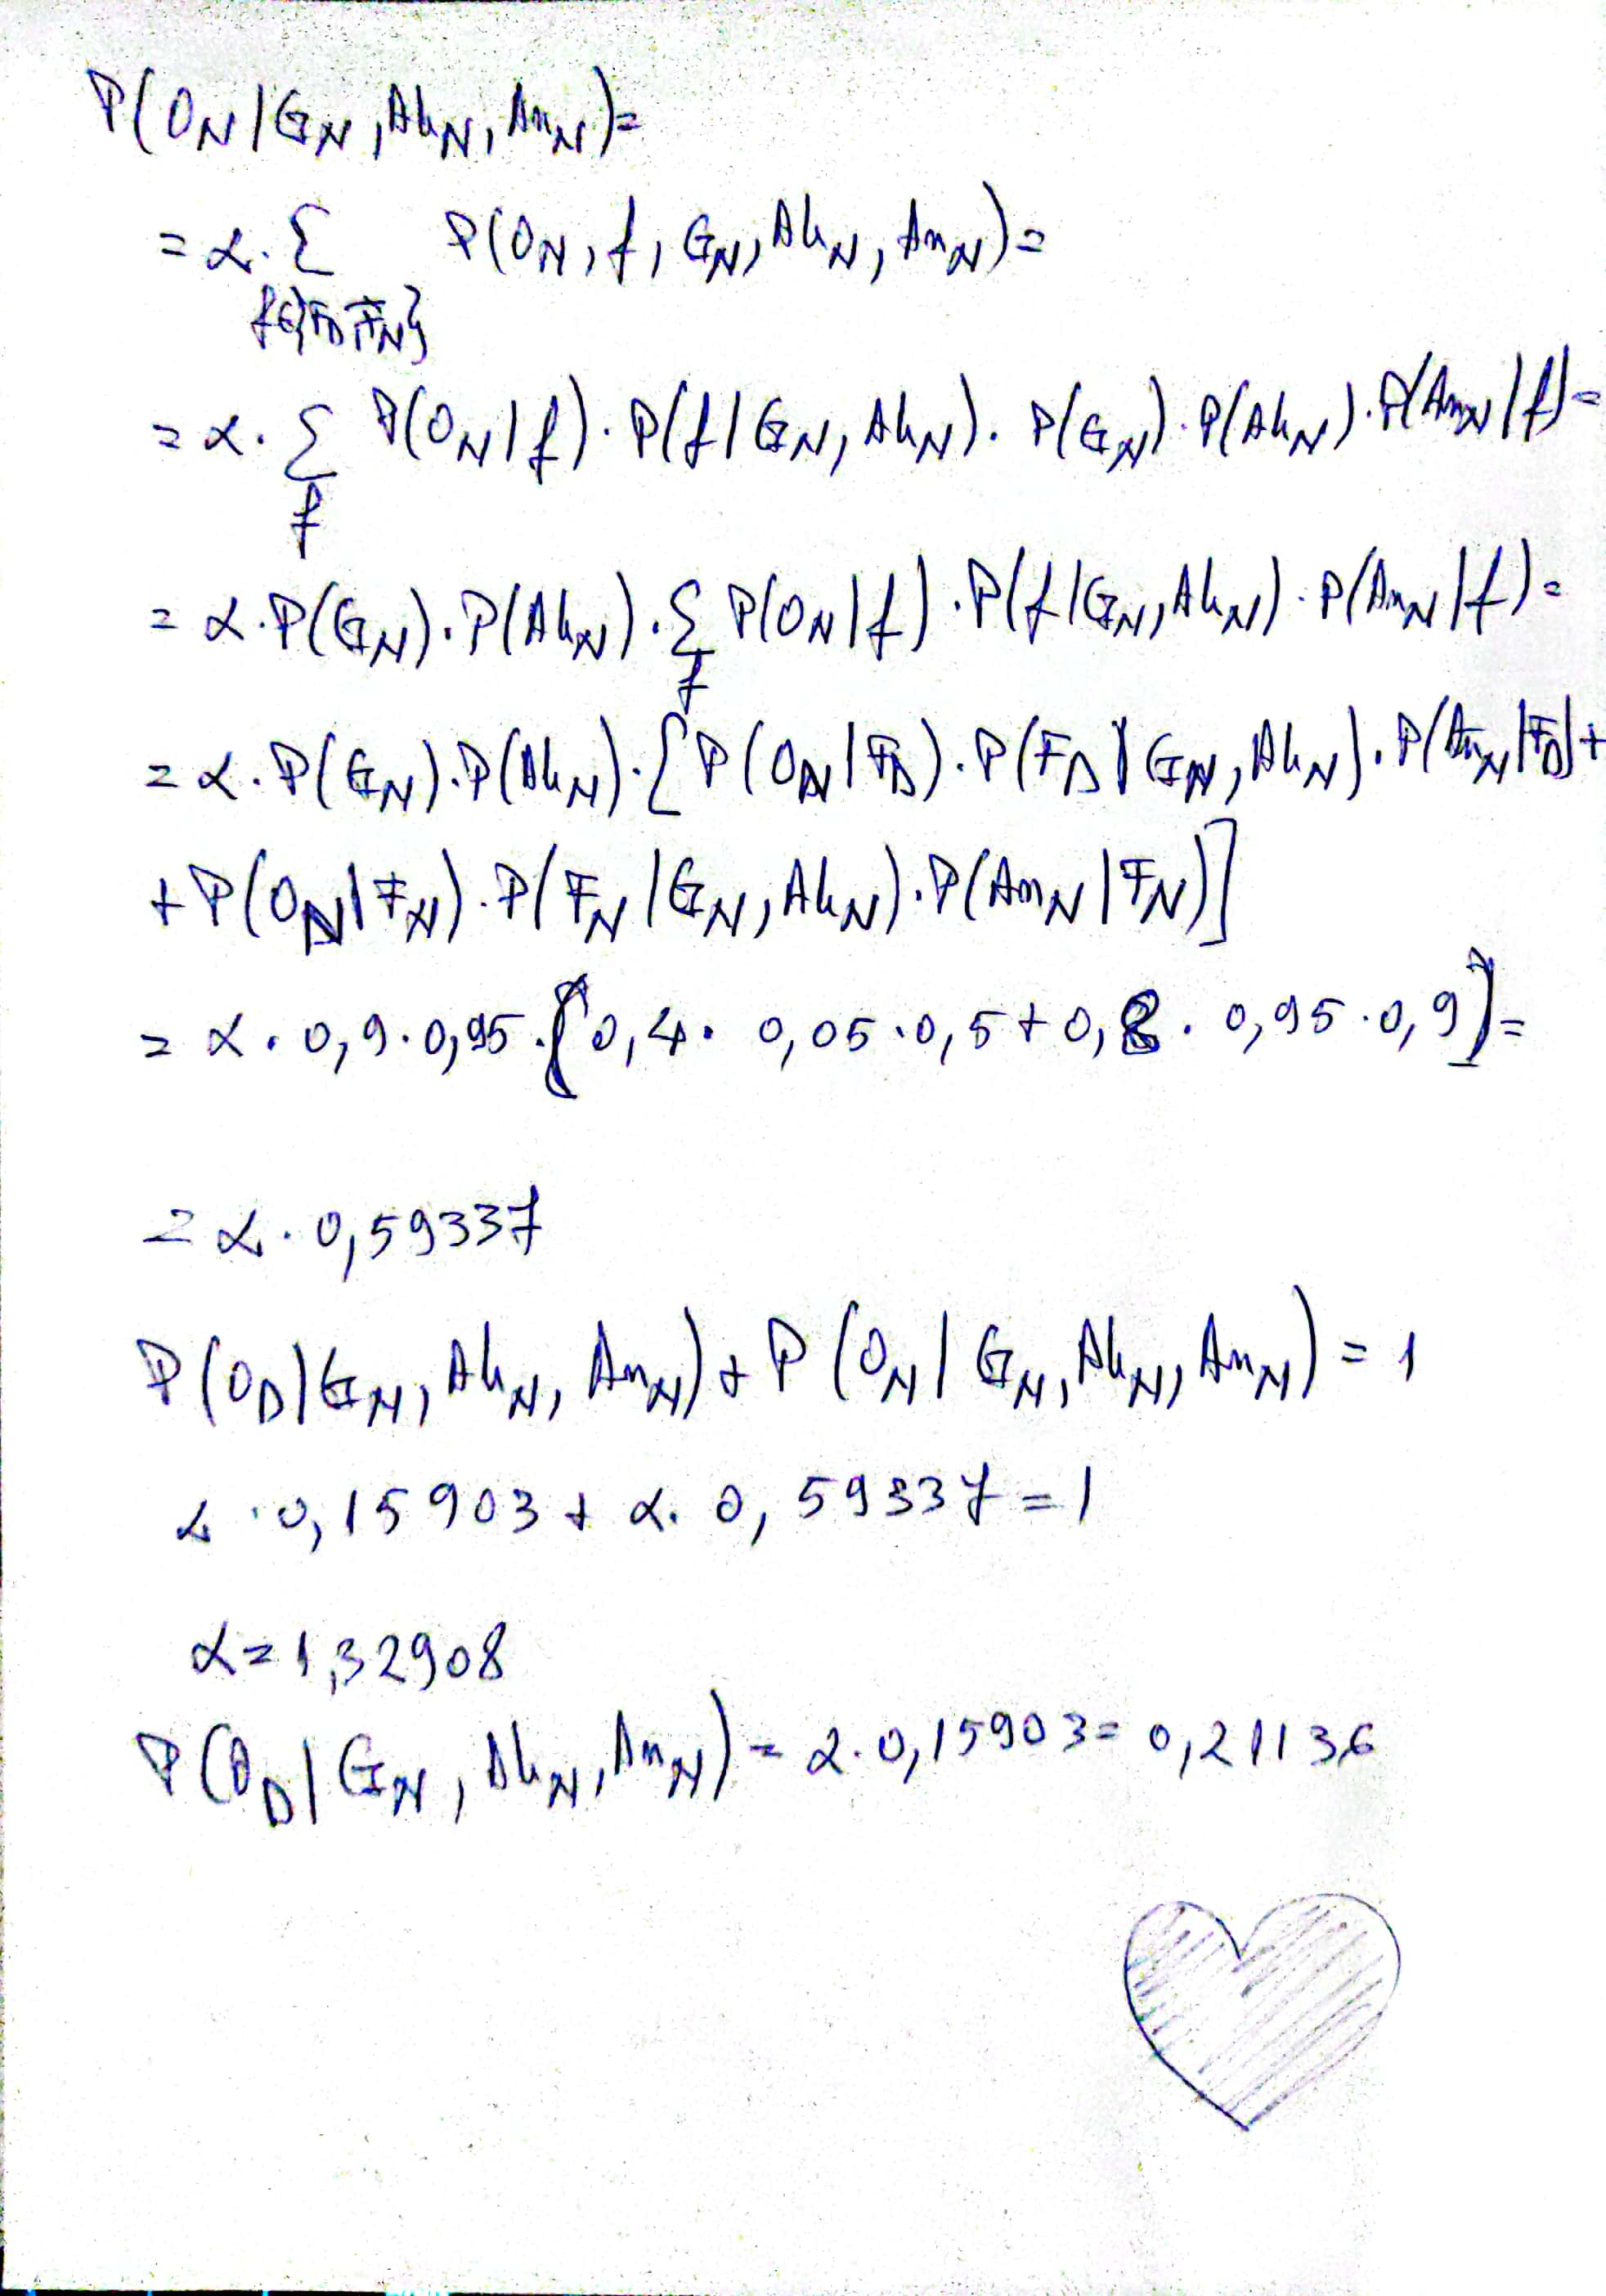 P(O_N|G_N, Ak_N, Am_N)=
= α. Σ P(O_N, f, G_N, Ak_N, Am_N)=
f∈{F_D, F_N}
= α. Σ P(O_N|f). P(f|G_N, Ak_N). P(G_N). P(Ak_N). P(Am_N|f)=
f
= α. P(G_N). P(Ak_N). Σ P(O_N|f). P(f|G_N, Ak_N). P(Am_N|f)=
f
= α. P(G_N). P(Ak_N). [P(O_N|F_D). P(F_D|G_N, Ak_N). P(Am_N|F_D)+
+ P(O_N|F_N). P(F_N|G_N, Ak_N). P(Am_N|F_N)]
= α. 0,9. 0,95. [0,4. 0,05. 0,5 + 0,8. 0,95. 0,9]=
= α. 0,59337
P(O_D|G_N, Ak_N, Am_N)+ P(O_N|G_N, Ak_N, Am_N)= 1
α. 0,15903 + α. 0,59337 = 1
α = 1,32908
P(O_D|G_N, Ak_N, Am_N)= α. 0,15903 = 0,21136